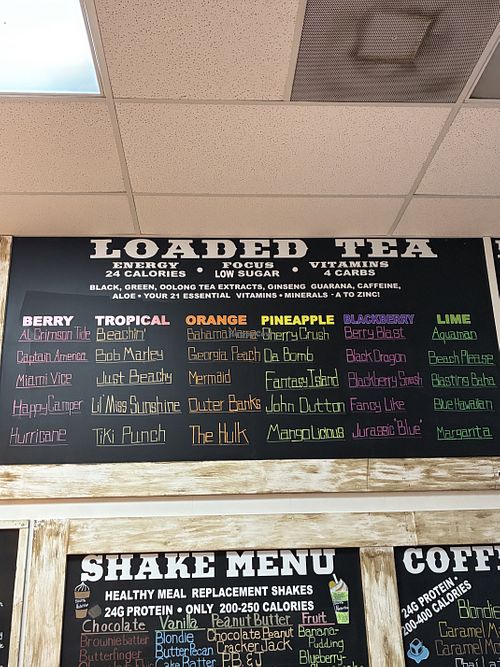 LOADED TEA
ENERGY • FOCUS • VITAMINS
24 CALORIES LOW SUGAR 4 CARBS
BLACK, GREEN, OOLONG TEA EXTRACTS, GINSENG GUARANA, CAFFEINE,
ALOE • YOUR 21 ESSENTIAL VITAMINS • MINERALS - A TO ZINC!
BERRY TROPICAL ORANGE PINEAPPLE BLACKBERRY LIME
Al Crimson Tide Beachin' Bahama Mama Cherry Crush Berry Blast Aquaman
Captain America Bob Marley Georgia Peach Da Bomb Black Dragon Beach Please
Miami Vice Just Beachy Mermaid Fantasy Island Blackberry Smash Blasting Baha
Happy Camper Lil' Miss Sunshine Outer Banks John Dutton Fancy Like Blue Hawaiian
Hurricane Tiki Punch The Hulk Mango Licious Jurassic "Blue" Margarita
SHAKE MENU
HEALTHY MEAL REPLACEMENT SHAKES
24G PROTEIN • ONLY 200-250 CALORIES
Chocolate Vanilla Peanut Butter Fruit
Brownie batter Blondie Chocolate Peanut Banana-
Butterfinger Butter Pecan Cracker Jack Pudding
Cake Batter P.B. & J Blueberry
COFF
24G PROTEIN •
200-400 CALORIES
Blondie
Caramel M
Caramel M